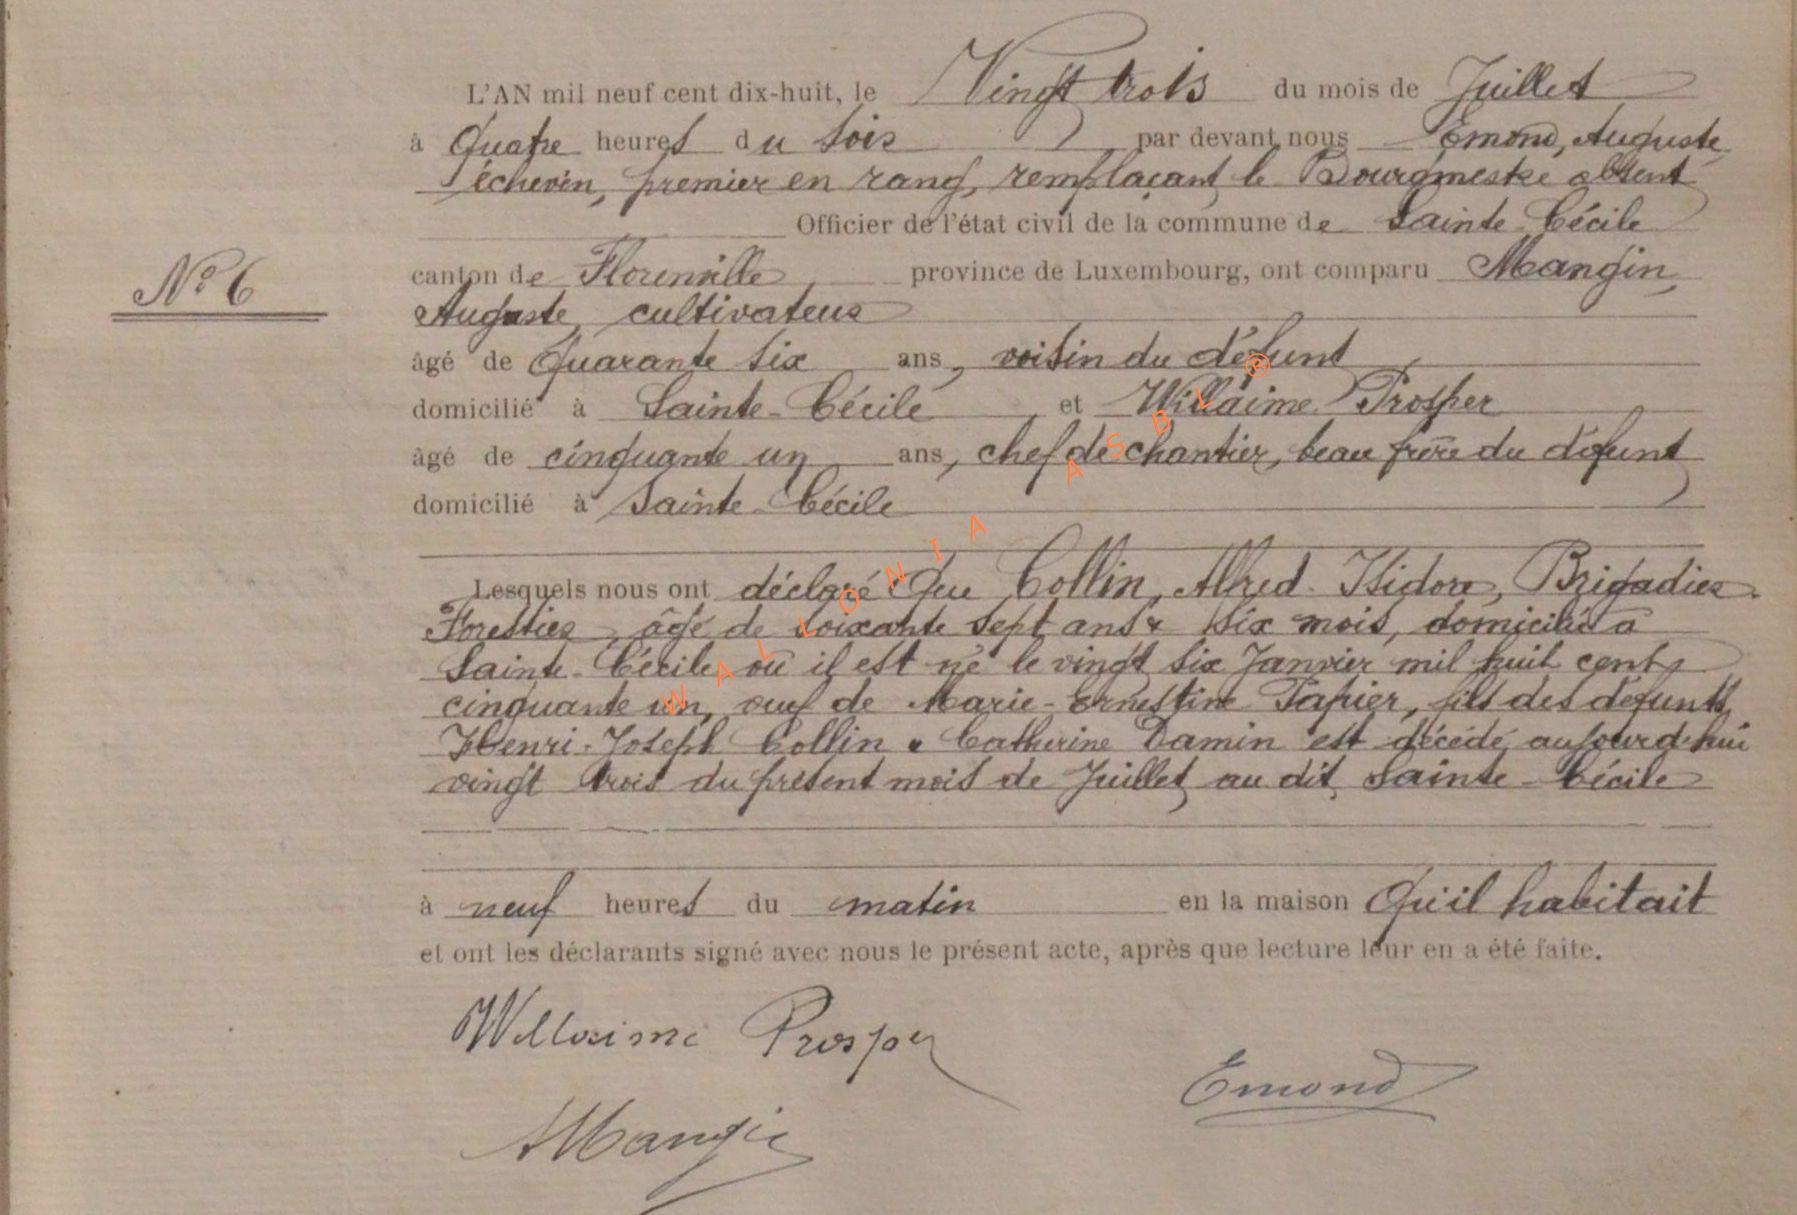 L'AN mil neuf cent dix-huit, le Vingt trois du mois de Juillet
à Quatre heures du soir par devant nous Emond, Auguste,
échevin, premier en rang, remplaçant le Bourgmestre absent
Officier de l'état civil de la commune de Sainte-Cécile
N° 6
canton de Florenville province de Luxembourg, ont comparu Mangin,
Auguste, cultivateur
âgé de Quarante six ans, voisin du défunt
domicilié à Sainte-Cécile et Willaime Prosper
âgé de cinquante un ans, chef de chantier, beau frère du défunt
domicilié à Sainte-Cécile
Lesquels nous ont déclaré Que Collin, Alfred-Isidore, Brigadier
Forestier, âgé de soixante sept ans & six mois, domicilié à
Sainte-Cécile où il est né le vingt six Janvier mil huit cent
cinquante un, veuf de Marie-Ernestine Papier, fils des défunts
Henri-Joseph Collin & Catherine Damin est décédé aujourd'hui
vingt trois du présent mois de Juillet, au dit Sainte-Cécile
à neuf heures du matin en la maison Qu'il habitait
et ont les déclarants signé avec nous le présent acte, après que lecture leur en a été faite.
Willaime Prosper
Emond
AMangin
WALLONIA ASBL ®